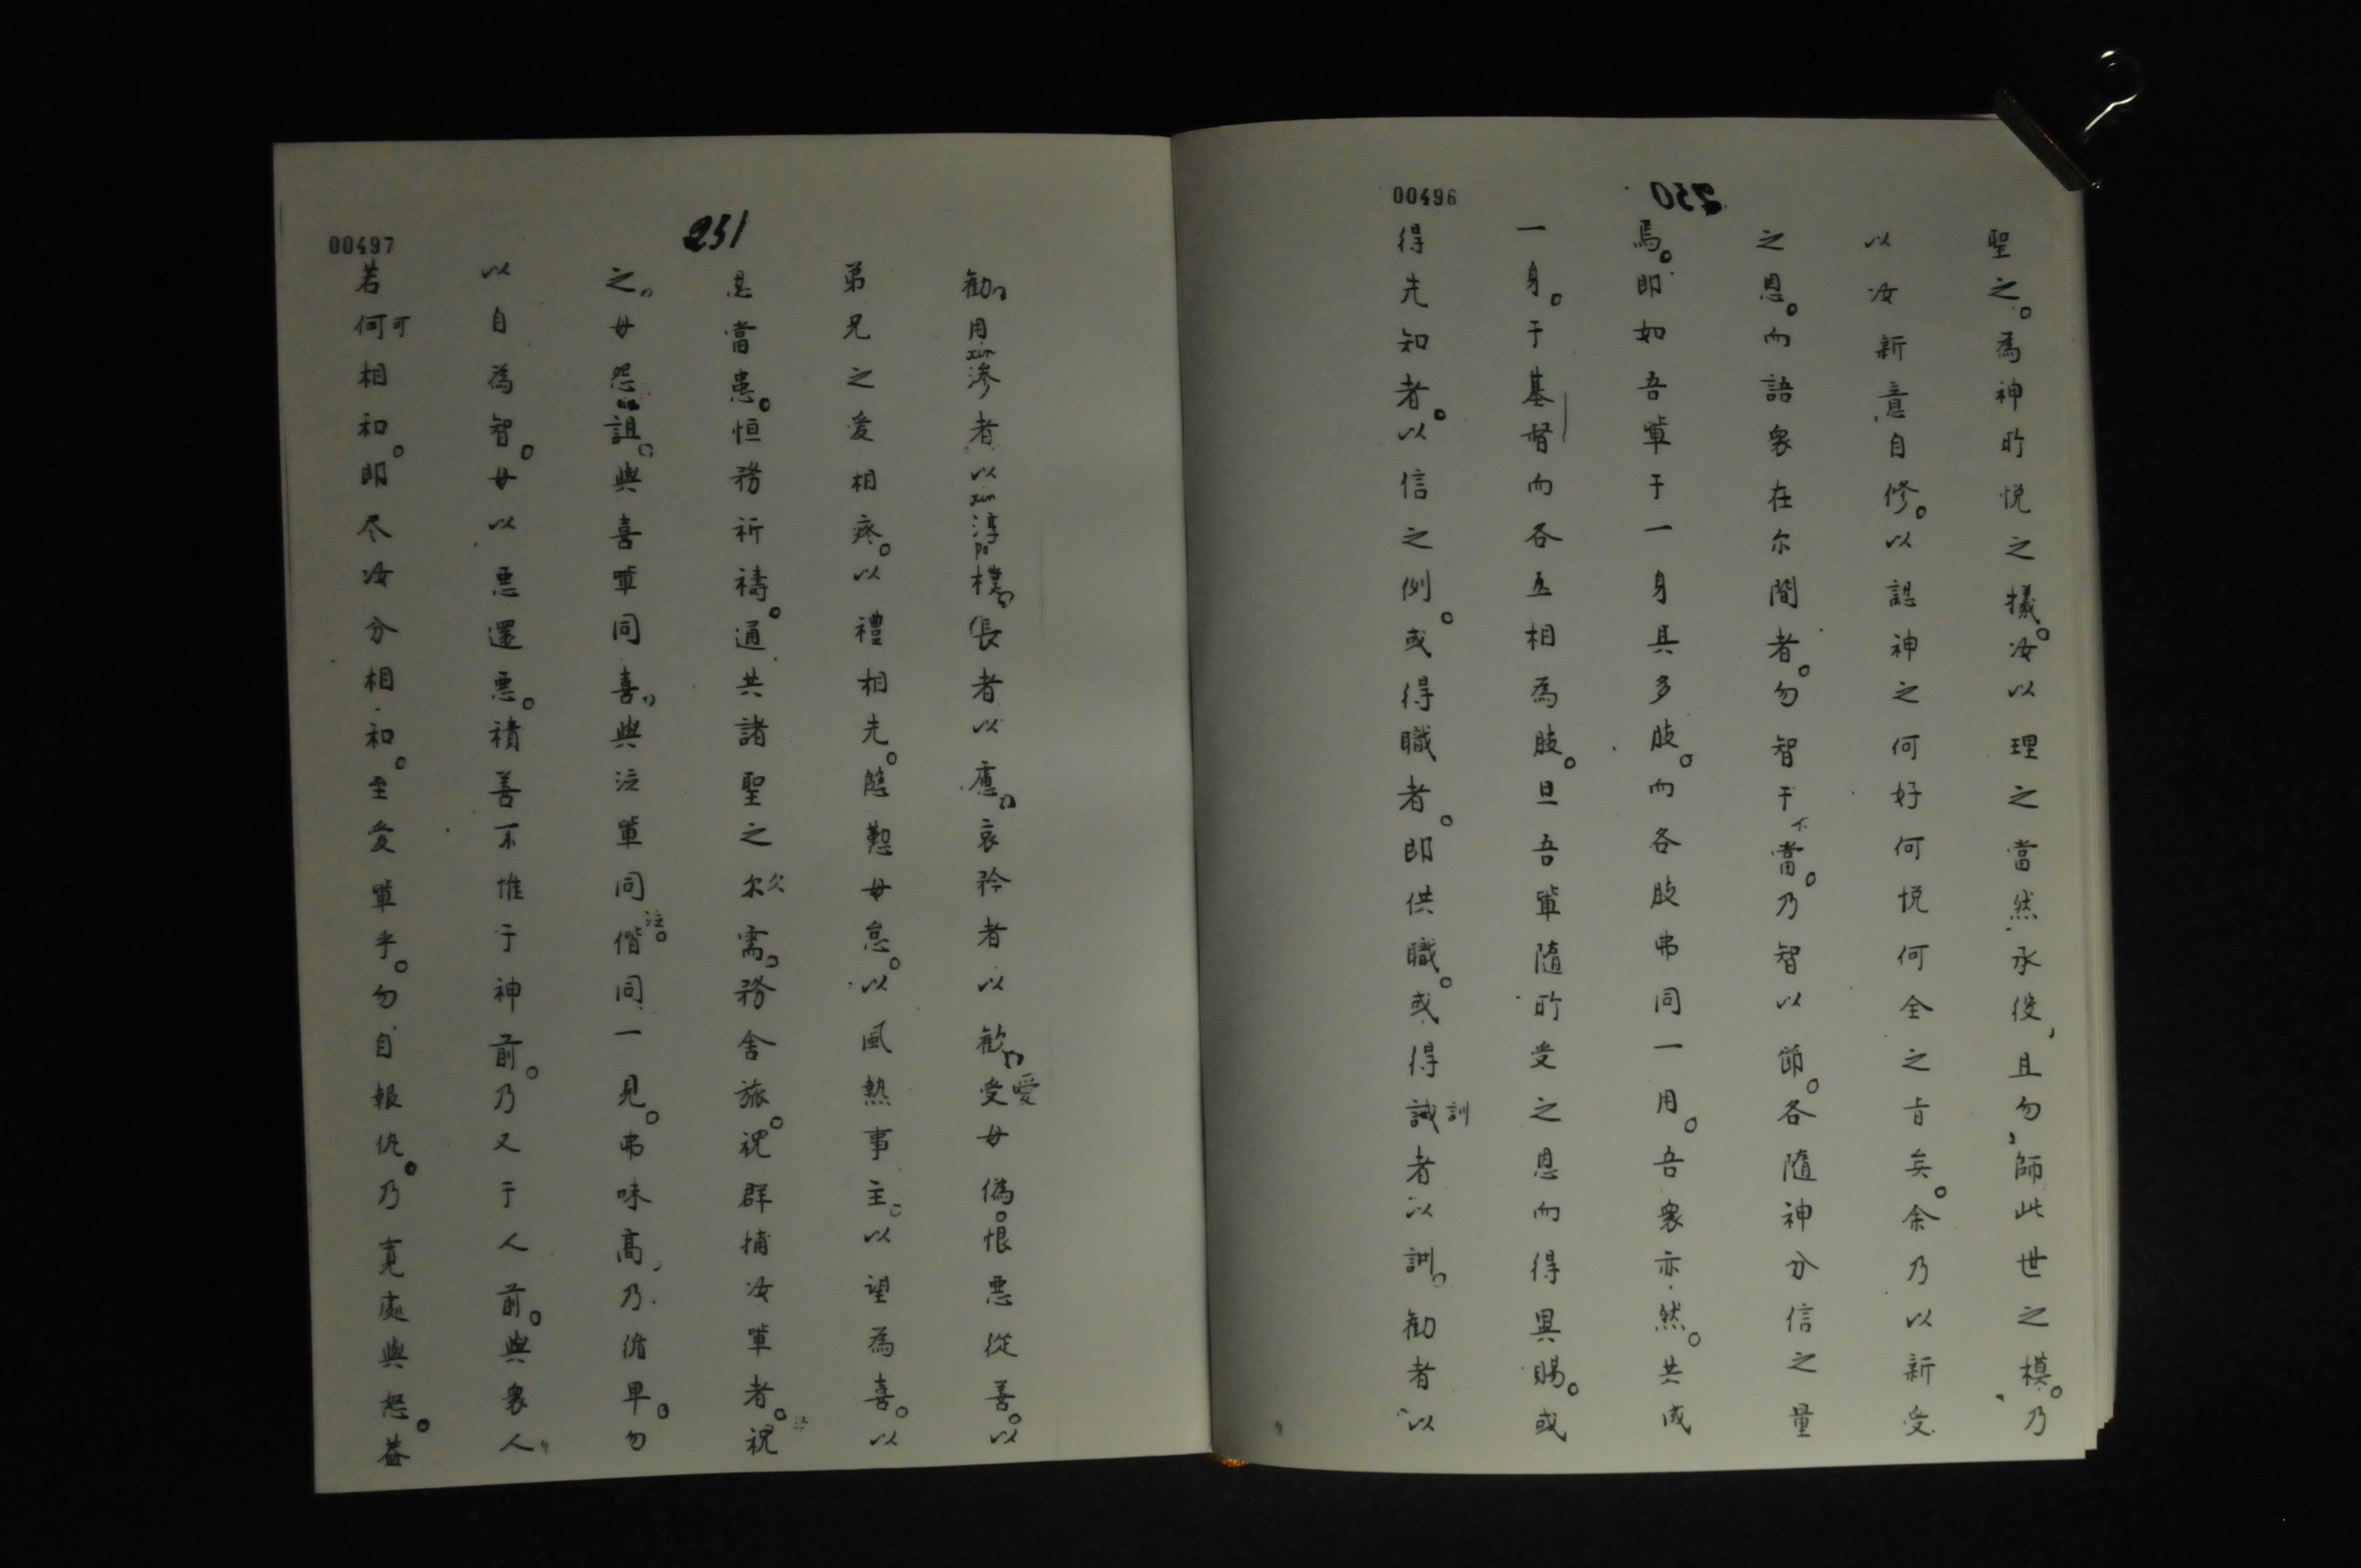 00496
250
聖之。為神所悅之犧。汝以理之當然承役，且勿，師此世之模。乃
以汝新意自修。以認神之何好何悅何全之旨矣。余乃以新受
之恩。而語衆在尔間者。勿智于不當。乃智以節。各隨神分信之量
焉。即如吾輩于一身具多肢。而各肢弗同一用。吾衆亦然。共成
一身。于基督而各互相為肢。且吾輩隨所受之恩而得異賜。或
得先知者。以信之例。或得職者。即供職。或得誡訓者以訓。勸者以
00497
251
勸。用xin滲者以xin淳po樸。長者以慮。哀矜者以歡。受愛毋偽。恨惡從善。以
弟兄之愛相疼。以禮相先。慇懃毋怠。以風熱事主。以望為喜。以
忍當患。恒務祈禱。通共諸聖之尔欠需。務舍旅。祝群捕汝輩者。祝
之。毋怨詛。與喜輩同喜。與泣輩同泣。偕同一見。弗味高，乃俯卑。勿
以自為智。毋以惡還惡。積善不惟于神前。乃又于人前。與衆人
若何可相和。即尽汝分相和。至愛輩乎。勿自報仇。乃寛處與怒。蓋